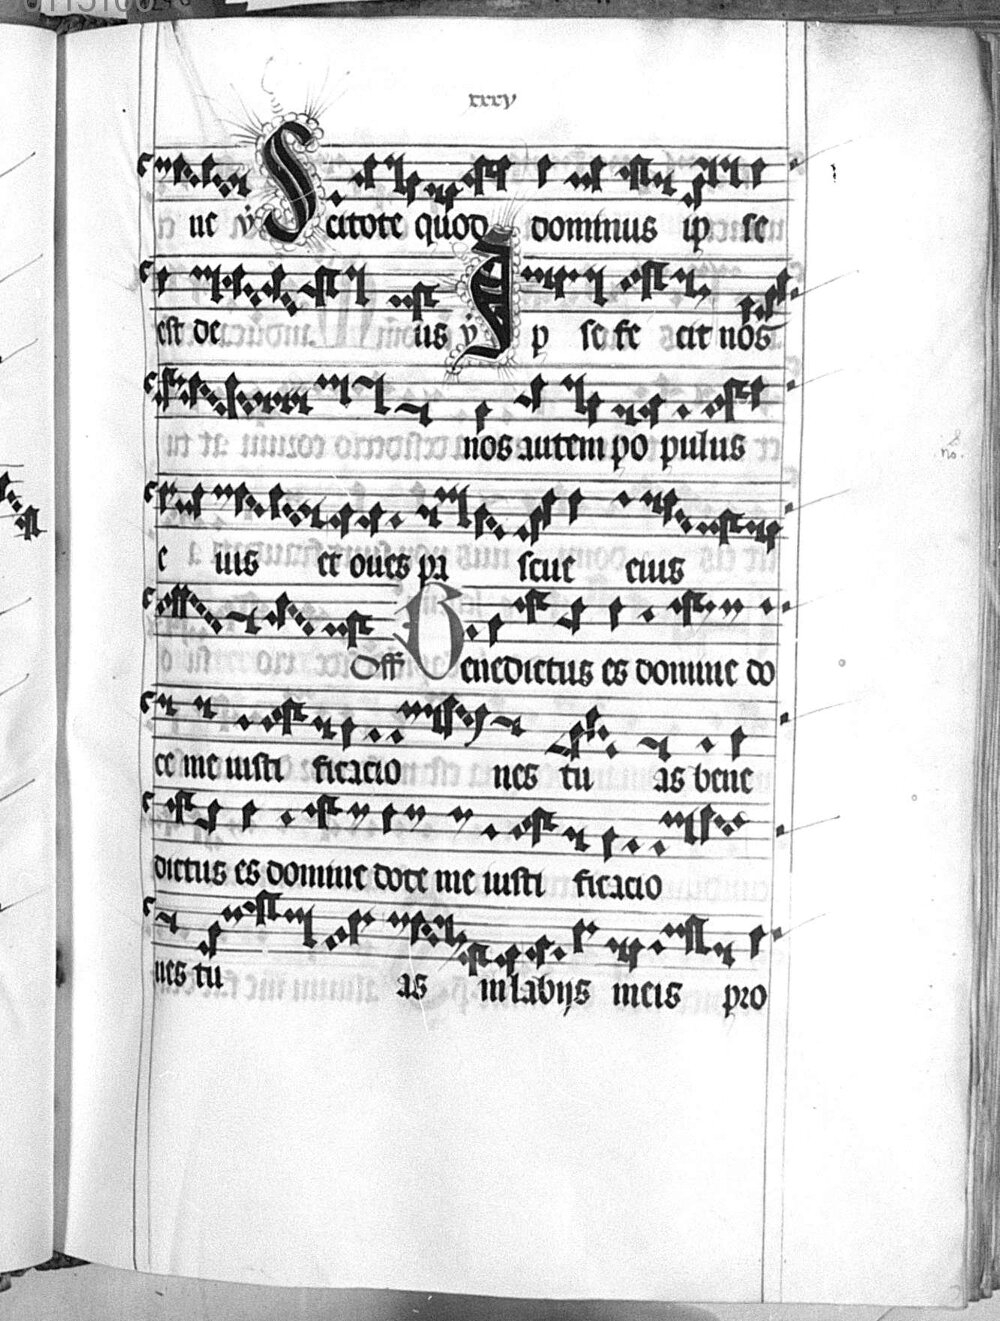 xxxv
ne ꝟ Scitote quod dominus ip se
est de us ꝟ Ip se fe cit nos
nos autem po pulus
e ius et oues pa scue eius
Off Benedictus es domine do
ce me iusti ficacio nes tu as bene
dictus es domine doce me iusti ficacio
nes tu as in labijs meis pro